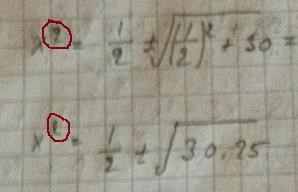 x = 1/2 ± √((1/2)² + 30) =
x = 1/2 ± √30.25